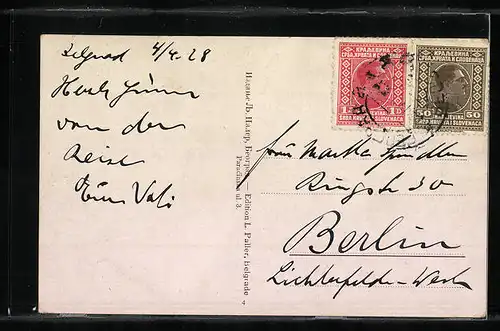 Belgrad 4/4.28
Herzl. Grüsse
von der
Reise
Euer Vati
Издање Љ. Палер, Београд — Edition L. Paller, Belgrade
КРАЉЕВИНА
СРБА, ХРВАТА И СЛОВЕНАЦА
1 1
KRALJEVINA
SRBA HRVATA I SLOVENACA
КРАЉЕВИНА
СРБА, ХРВАТА И СЛОВЕНАЦА
50 50
KRALJEVINA
SRBA HRVATA I SLOVENACA
Frau Martha
Ringstr 30
Berlin
Lichterfelde-West